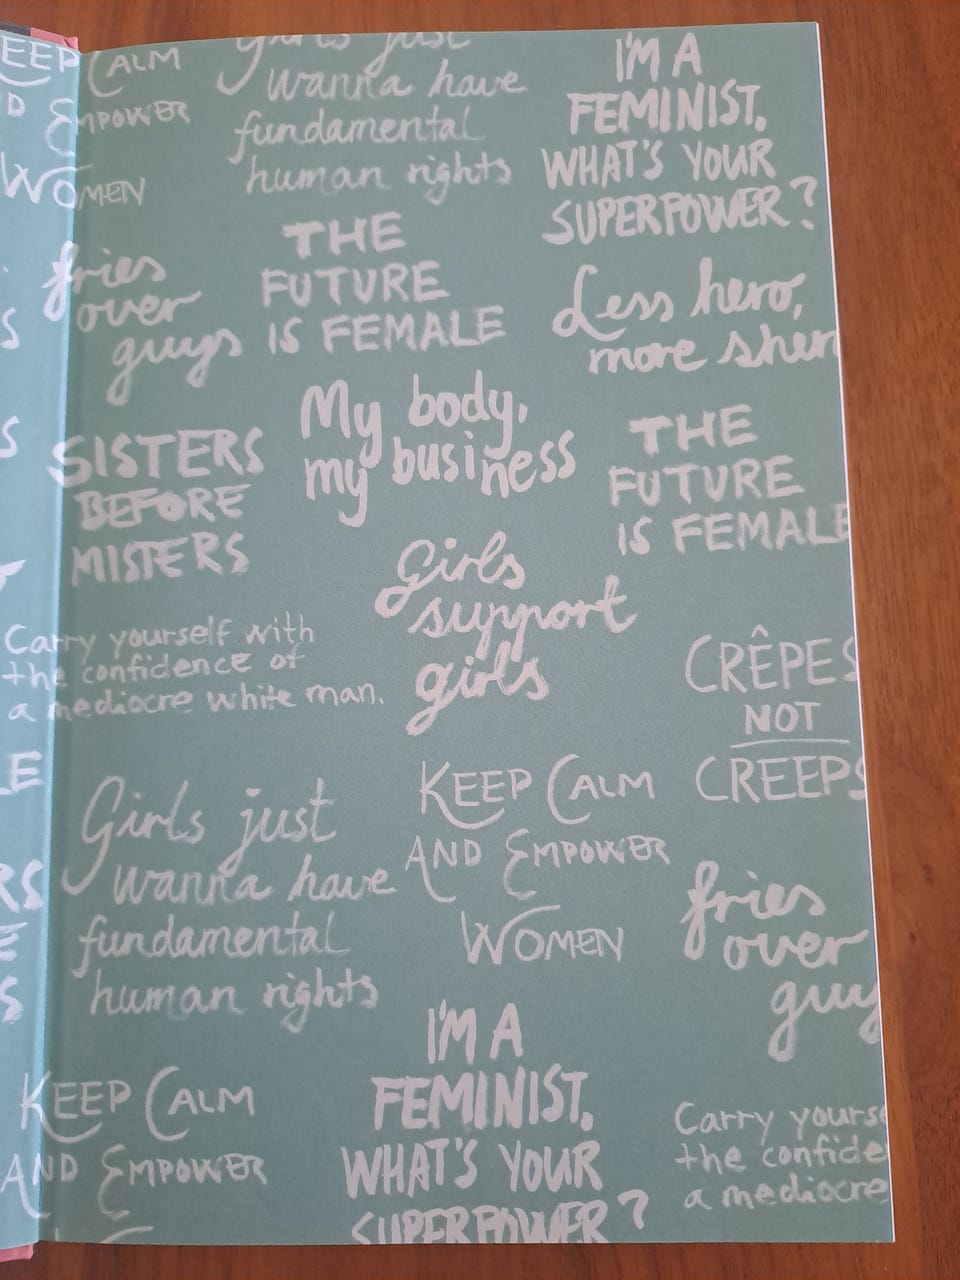 KEEP CALM
AND EMPOWER
WOMEN
Girls just
wanna have
fundamental
human rights
I'M A
FEMINIST.
WHAT'S YOUR
SUPERPOWER?
fries
over
guys
THE
FUTURE
IS FEMALE
Less hero,
more
SISTERS
BEFORE
MISTERS
My body,
my business
THE
FUTURE
IS FEMALE
Girls
support
girls
Carry yourself with
the confidence of
a mediocre white man.
CRÊPES
NOT
CREEPS
Girls just
wanna have
fundamental
human rights
KEEP CALM
AND EMPOWER
WOMEN
fries
over
guy
KEEP CALM
AND EMPOWER
I'M A
FEMINIST.
WHAT'S YOUR
SUPERPOWER?
Carry yourse
the confide
a mediocre